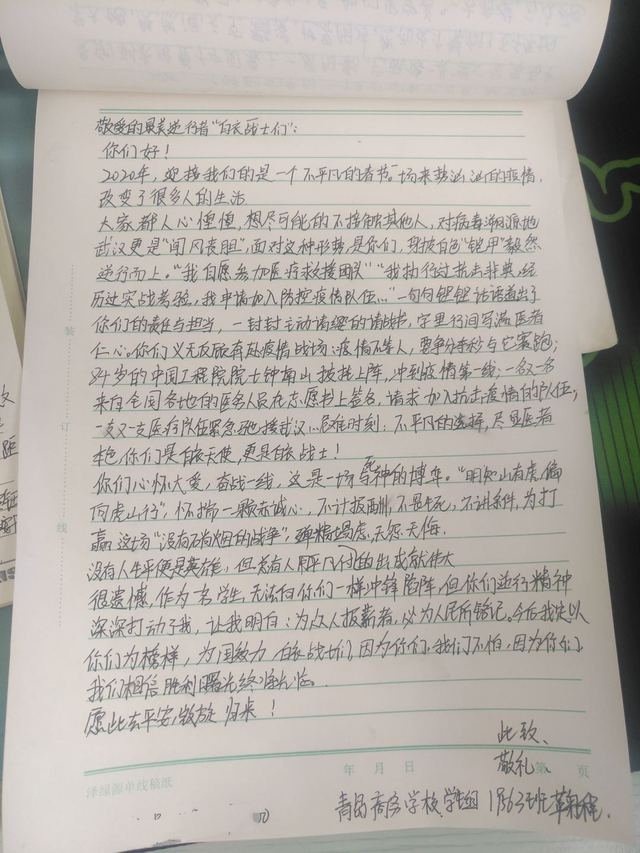 敬爱的最美逆行者“白衣战士们”:
你们好!
2020年,迎接我们的是一个不平凡的春节。一场来势汹汹的疫情,
改变了很多人的生活
大家都人心惶惶,想尽可能的不接触其他人,对病毒溯源地
武汉更是“闻风丧胆”,面对这种形势,是你们,身披白色“铠甲”毅然
逆行而上。“我自愿参加医疗救援团队”“我执行过抗击非典,经
历过实战考验,我申请加入防控疫情队伍...”一句句铿锵话语道出了
你们的责任与担当,一封封主动请缨的请战书,字里行间写满医者
仁心。你们义无反顾奔赴疫情战场:疫情不等人,要争分夺秒与它赛跑;
84岁的中国工程院院士钟南山披挂上阵,冲到疫情第一线;一名又一名
来自全国各地的医务人员在志愿书上签名,请求加入抗击疫情的队伍;
一支又一支医疗队伍紧急驰援武汉...危难时刻,不平凡的选择,尽显医者
本色,你们是白衣天使,更是白衣战士!
你们心怀大爱,奋战一线,这是一场与死神的博弈。“明知山有虎,偏
向虎山行”,怀揣一颗赤诚心,不计报酬,不畏生死,不讲条件,为打
赢这场“没有硝烟的战争”,殚精竭虑,无怨无悔.
没有人生平便是英雄,但总有人用平凡的出成就伟大
很遗憾,作为一名学生,无法向你们一样冲锋陷阵,但你们逆行精神
深深打动了我,让我明白:为众人抱薪者,必为人民所铭记。今后我定以
你们为榜样,为国效力,白衣战士们,因为你们,我们不怕,因为你们,
我们相信胜利曙光终将来临
愿此去平安,绽放归来!
此致、
敬礼、
年 月 日 第 页
泽绿源单线稿纸
青岛商务学校 学生组 1963班
装
订
线